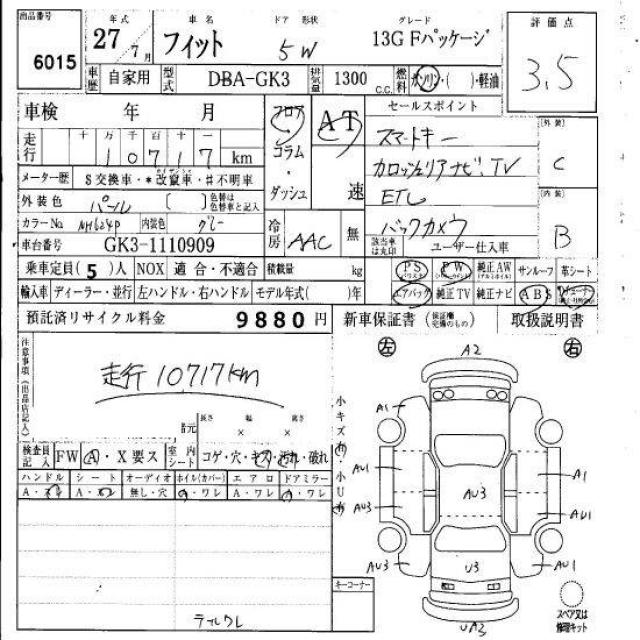 出品番号 6015
年式 27年 7月
車名 フィット
ドア 形状 5W
グレード 13G Fパッケージ
評価点 3.5
車歴 自家用
型式 DBA-GK3
排気量 1300 c.c.
燃料 ガソリン・( )・軽油
車検 年 月
フロア
コラム
・
ダッシュ
AT
速
セールスポイント
スマートキー
カロッツェリアナビ、TV
ETC
バックカメラ
[外装]
C
[内装]
B
走行 十万千百十一
10717 km
メーター歴 $交換車・*改竄車・#不明車
外装色 パール [ ] 色替は色替車と記入
カラーNo. NH624P 内装色 グレー
冷房 AAC 無
車台番号 GK3-1110909
該当車は丸印 ユーザー仕入車
乗車定員(5)人 NOX 適合・不適合 積載量 kg
PS PW 純正AW サンルーフ 革シート
輸入車 ディーラー・並行 左ハンドル・右ハンドル モデル年式( )年
エアバック 純正TV 純正ナビ ABS
預託済リサイクル料金 9880円
新車保証書 (保証欄完備のもの) 取扱説明書
注意事項(出品店記入)
走行 10717km
長さ 幅 高さ
× ×
左 右
A2
A1
AU1 A1
AU3 AU3 AU1
AU3 U3 AU3
UA3
小キズ
検査員記入 FW A・X要ス 室内シート コゲ・穴・キズ・汚れ・破れ
ハンドル シート オーディオ ホイル(カバー) エアロ ドアミラー
A・スレ A・スレ 無し・穴 A・ワレ A・ワレ A・ワレ
テイルワレ
キーコーナー
スペア又は
修理キット